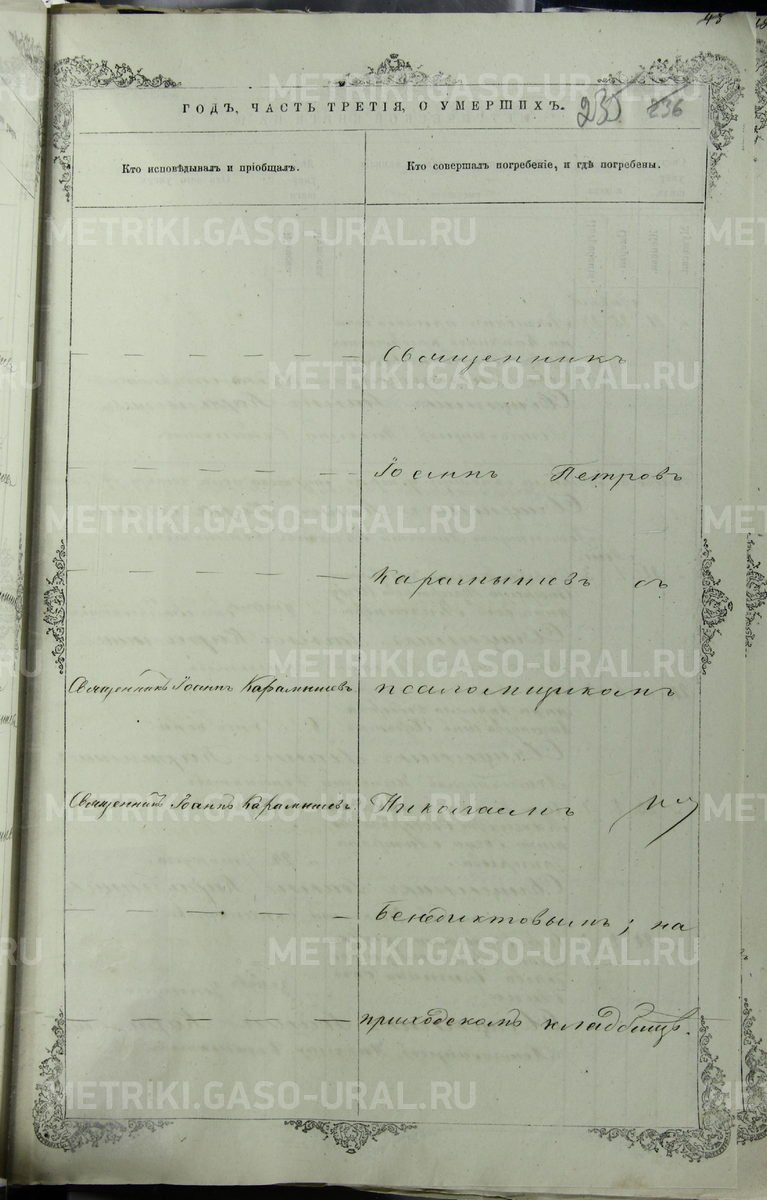 43
ГОДЪ, ЧАСТЬ ТРЕТІЯ, О УМЕРШИХЪ.
235 236
Кто исповѣдывалъ и пріобщалъ.
Кто совершалъ погребеніе, и гдѣ погребены.
Священникъ
Іоаннъ Петровъ
Карамышевъ съ
Священникъ Іоаннъ Карамышевъ
псаломщикомъ
Священникъ Іоаннъ Карамышевъ.
Николаемъ
Бенедиктовымъ; на
приходскомъ кладбищѣ.
METRIKI.GASO-URAL.RU